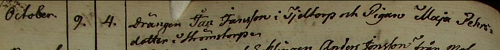 October. 9. 4. Drängen Jaa Jansson i Tjeltorp och Pigan Maja Pehrs
dotter i Strömstorp
Anders Jonsson från